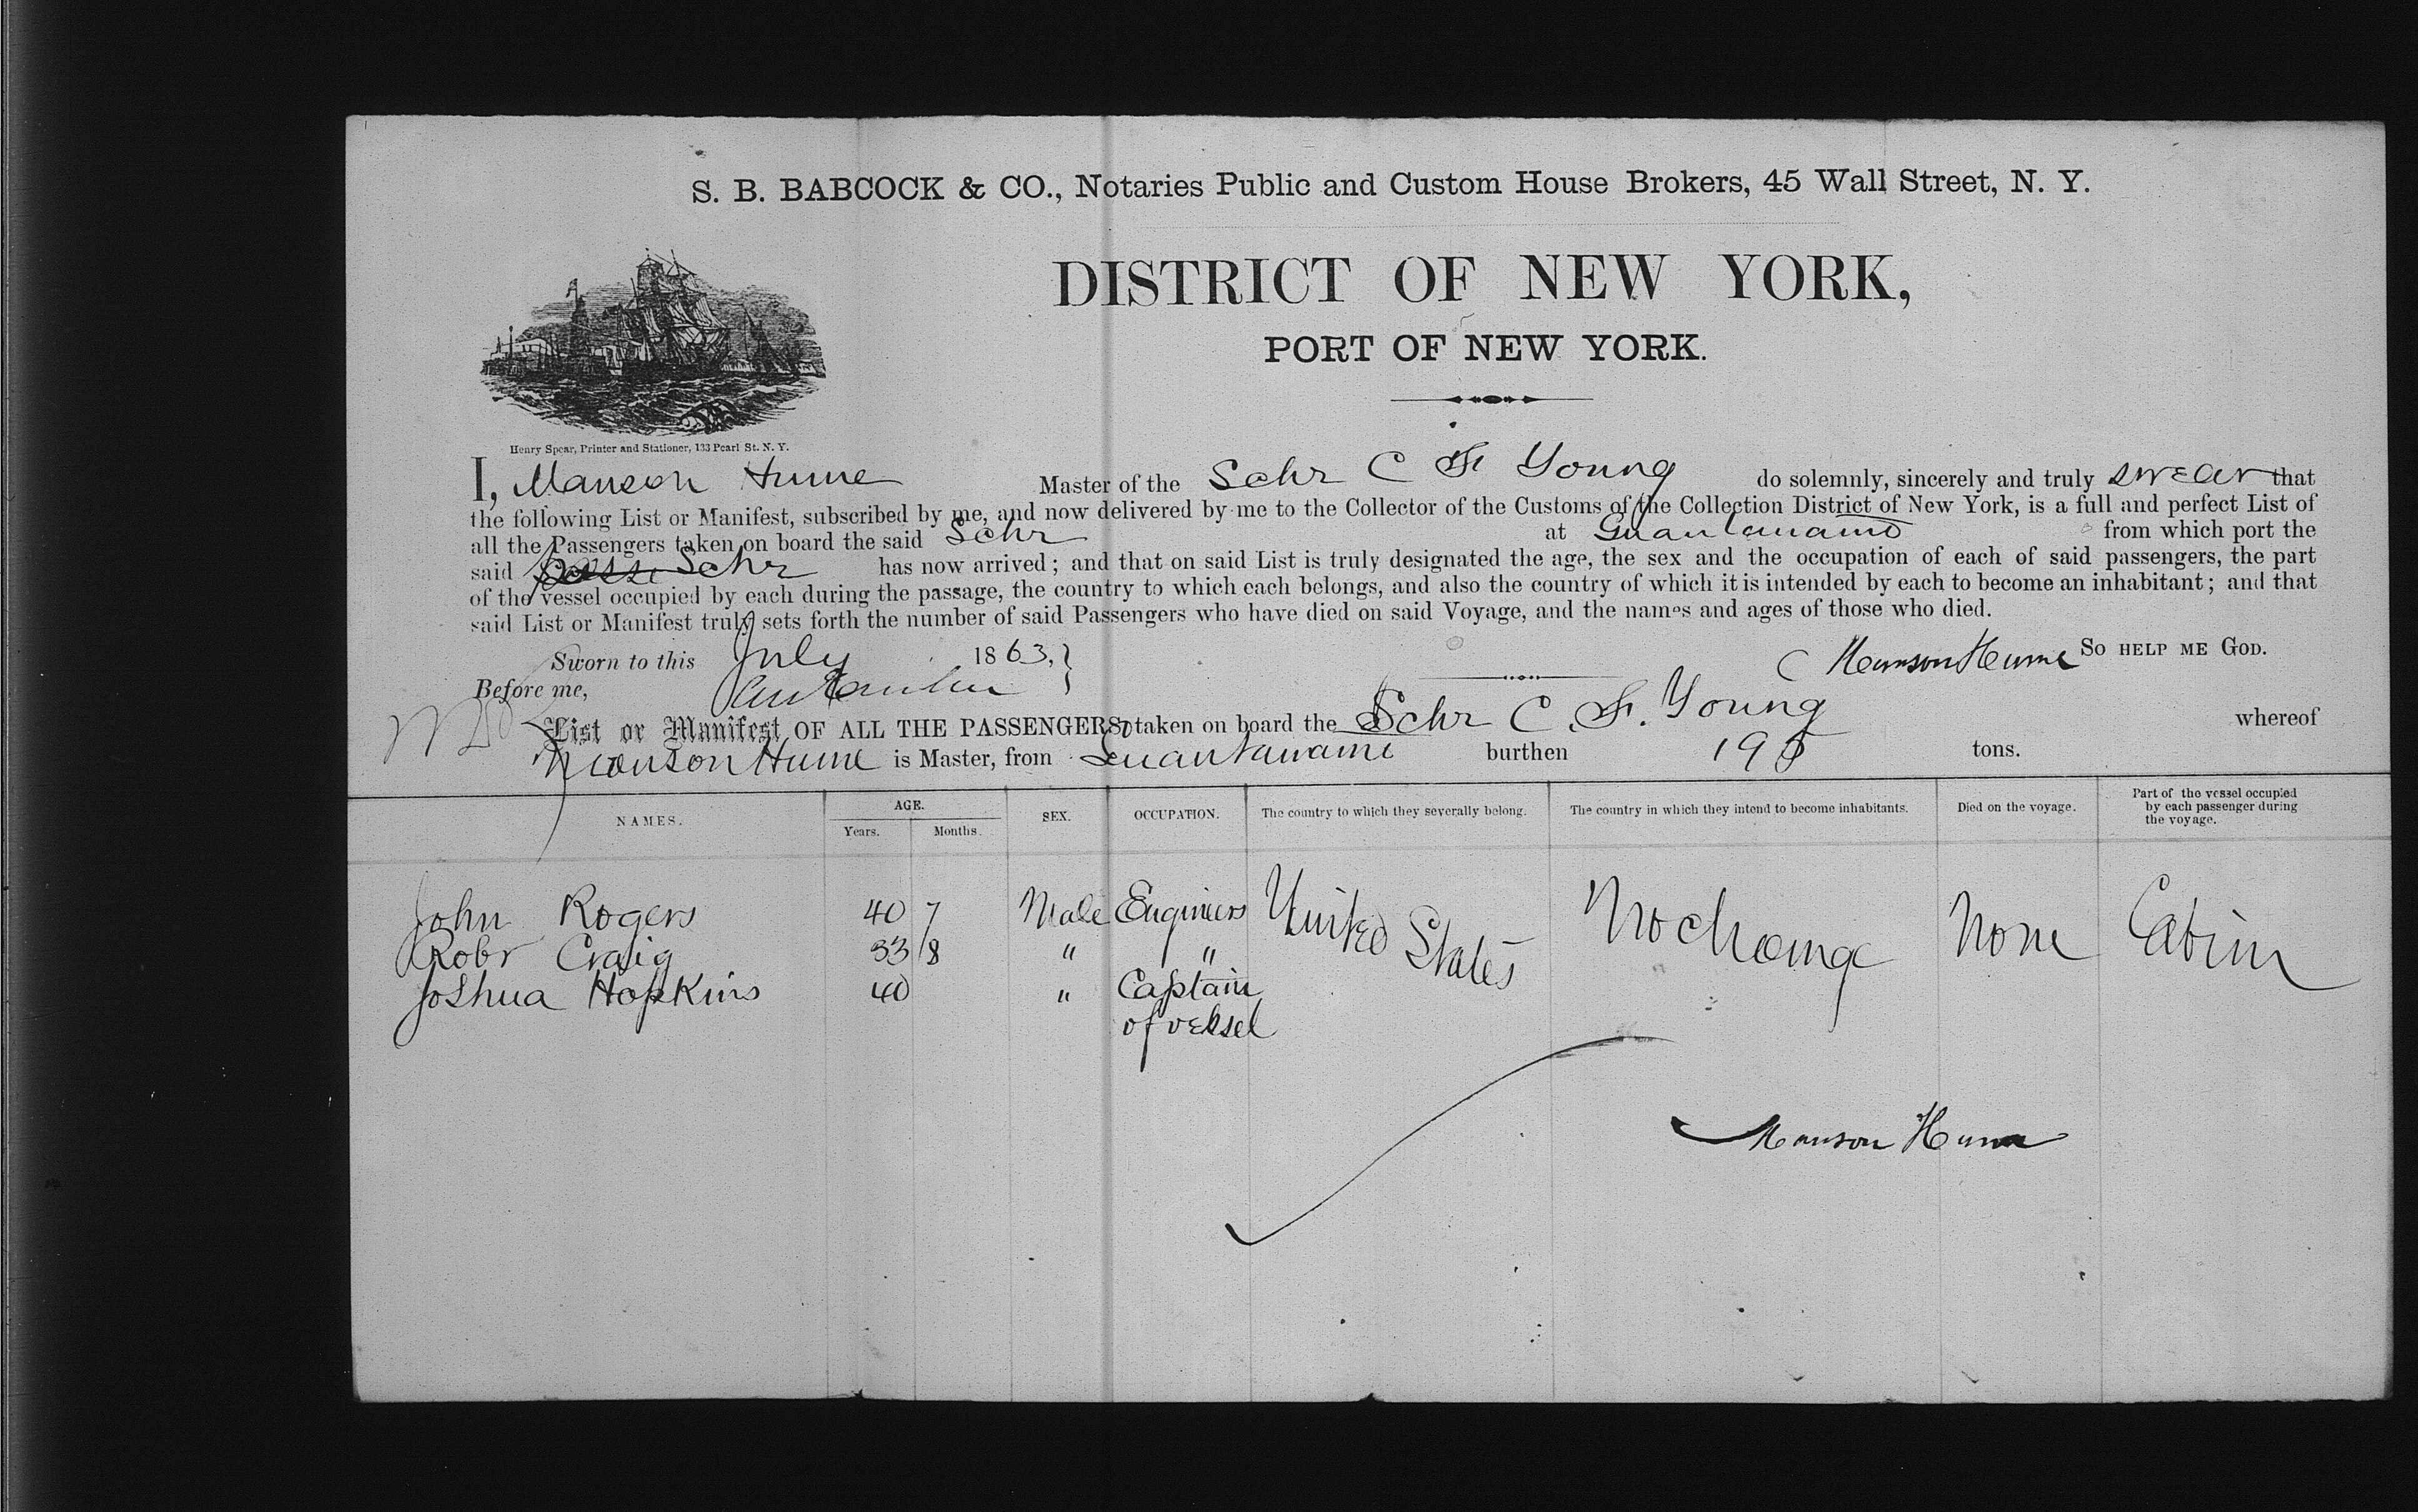 S. B. BABCOCK & CO., Notaries Public and Custom House Brokers, 45 Wall Street, N. Y.
DISTRICT OF NEW YORK,
PORT OF NEW YORK.
Henry Spear, Printer and Stationer, 133 Pearl St. N. Y.
I, Manson Hume Master of the Schr C F Young do solemnly, sincerely and truly swear that
the following List or Manifest, subscribed by me, and now delivered by me to the Collector of the Customs of the Collection District of New York, is a full and perfect List of
all the Passengers taken on board the said Schr at Guantanamo from which port the
said Schr has now arrived; and that on said List is truly designated the age, the sex and the occupation of each of said passengers, the part
of the vessel occupied by each during the passage, the country to which each belongs, and also the country of which it is intended by each to become an inhabitant; and that
said List or Manifest truly sets forth the number of said Passengers who have died on said Voyage, and the names and ages of those who died.
Sworn to this July 1863, Manson Hume SO HELP ME GOD.
Before me,
List or Manifest OF ALL THE PASSENGERS taken on board the Schr C. F. Young whereof
Manson Hume is Master, from Guantanamo burthen tons.
NAMES. AGE. Years. Months. SEX. OCCUPATION. The country to which they severally belong. The country in which they intend to become inhabitants. Died on the voyage. Part of the vessel occupied by each passenger during the voyage.
John Rogers 40 7 Male Engineers United States No change None Cabin
Robr Craig 33 8 " "
Joshua Hopkins 40 " Captain
of vessel
Manson Hume